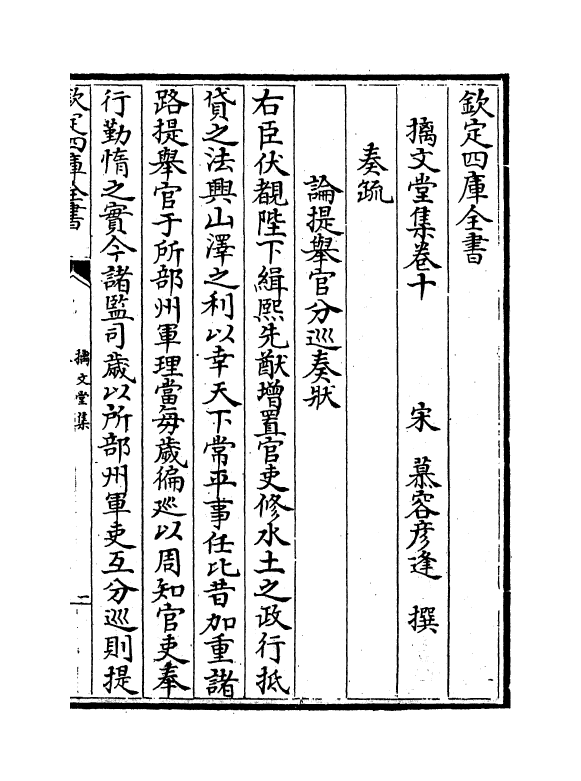 欽定四庫全書
摛文堂集卷十　宋　慕容彦逢　撰
奏疏
論提舉官分巡奏狀
右臣伏覩陛下緝熙先猷增置官吏修水土之政行抵
貸之法興山澤之利以幸天下常平事任比昔加重諸
路提舉官于所部州軍理當每歲徧巡以周知官吏奉
行勤惰之實今諸監司歲以所部州軍吏互分巡則提
欽定四庫全書
摛文堂集